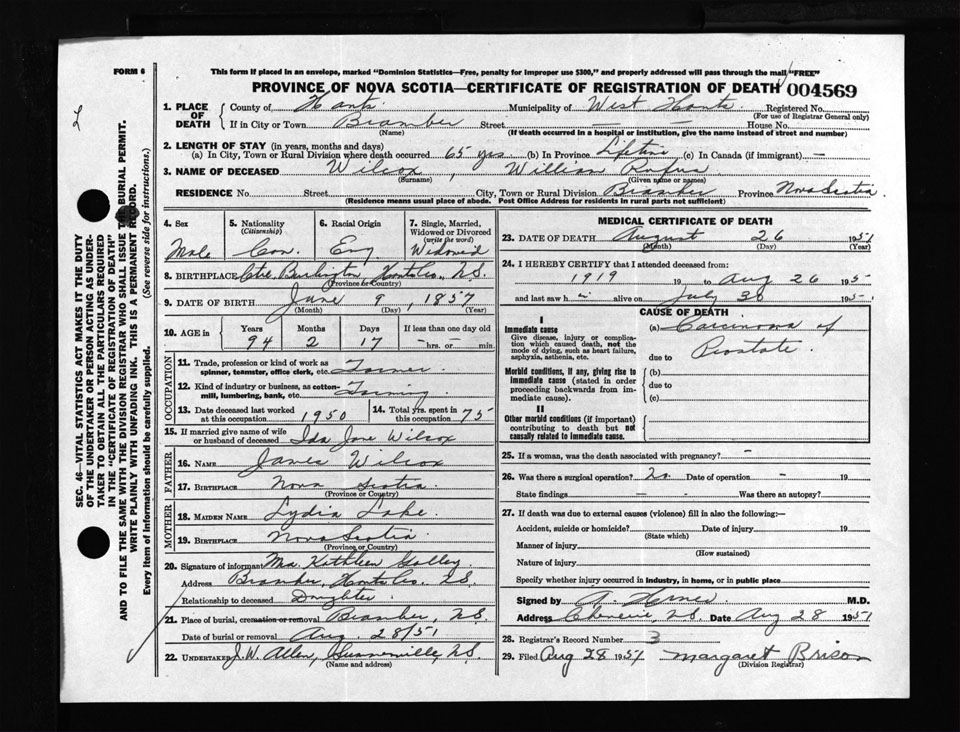 FORM 6
This form if placed in an envelope, marked "Dominion Statistics—Free, penalty for improper use $300," and properly addressed will pass through the mail "FREE"
PROVINCE OF NOVA SCOTIA—CERTIFICATE OF REGISTRATION OF DEATH 004569
1. PLACE OF DEATH County of Hants Municipality of West Hants Registered No.
(For use of Registrar General only)
If in City or Town Bramber Street — — House No.
(Name) (If death occurred in a hospital or institution, give the name instead of street and number)
2. LENGTH OF STAY (in years, months and days)
(a) In City, Town or Rural Division where death occurred 65 yrs. (b) In Province Lifetime (c) In Canada (if immigrant) —
3. NAME OF DECEASED Wilcox, William Rufus
(Surname) (Given name or names)
RESIDENCE No. Street City, Town or Rural Division Bramber Province Nova Scotia
(Residence means usual place of abode. Post Office Address for residents in rural parts not sufficient)
4. Sex 5. Nationality (Citizenship) 6. Racial Origin 7. Single, Married, Widowed or Divorced (write the word)
Male Can. Eng Widowed
8. BIRTHPLACE Ctre. Burlington, Hants Co., N.S.
(Province or Country)
9. DATE OF BIRTH June 9, 1857
(Month) (Day) (Year)
10. AGE in Years Months Days If less than one day old
94 2 17 — hrs. or — min.
OCCUPATION
11. Trade, profession or kind of work as spinner, teamster, office clerk, etc. Farmer
12. Kind of industry or business, as cotton-mill, lumbering, bank, etc. Farming
13. Date deceased last worked at this occupation 1950 14. Total yrs. spent in this occupation 75
15. If married give name of wife or husband of deceased Ida Jane Wilcox
FATHER
16. NAME James Wilcox
17. BIRTHPLACE Nova Scotia
(Province or Country)
MOTHER
18. MAIDEN NAME Lydia Lake
19. BIRTHPLACE Nova Scotia
(Province or Country)
20. Signature of informant Mrs. Kathleen
Address Bramber, Hants Co. N.S.
Relationship to deceased Daughter
21. Place of burial, cremation or removal Bramber, N.S.
Date of burial or removal Aug. 28/51
22. UNDERTAKER J.W. Allen, N.S.
(Name and address)
MEDICAL CERTIFICATE OF DEATH
23. DATE OF DEATH August 26 1951
(Month) (Day) (Year)
24. I HEREBY CERTIFY that I attended deceased from:
1919 19 to Aug 26 195
and last saw h im alive on July 30 195
CAUSE OF DEATH
I
Immediate cause
Give disease, injury or complication which caused death, not the mode of dying, such as heart failure, asphyxia, asthenia, etc.
(a) Carcinoma of
due to Prostate
Morbid conditions, if any, giving rise to immediate cause (stated in order proceeding backwards from immediate cause).
(b)
due to
(c)
II
Other morbid conditions (if important) contributing to death but not causally related to immediate cause.
25. If a woman, was the death associated with pregnancy? —
26. Was there a surgical operation? no Date of operation — 19
State findings — — Was there an autopsy?
27. If death was due to external causes (violence) fill in also the following:—
Accident, suicide or homicide? Date of injury 19
(State which)
Manner of injury
(How sustained)
Nature of injury
Specify whether injury occurred in industry, in home, or in public place
Signed by M.D.
Address N.S. Date Aug 28 1951
28. Registrar's Record Number 3
29. Filed Aug 28 1951 Margaret Brison
(Division Registrar)
SEC. 46—VITAL STATISTICS ACT MAKES IT THE DUTY
OF THE UNDERTAKER OR PERSON ACTING AS UNDER-
TAKER TO OBTAIN ALL THE PARTICULARS REQUIRED
IN THE "CERTIFICATE OF REGISTRATION OF DEATH" AND
TO FILE THE SAME WITH THE DIVISION REGISTRAR WHO SHALL ISSUE BURIAL PERMIT.
WRITE PLAINLY WITH UNFADING INK. THIS IS A PERMANENT RECORD.
Every item of Information should be carefully supplied. (See reverse side for instructions.)